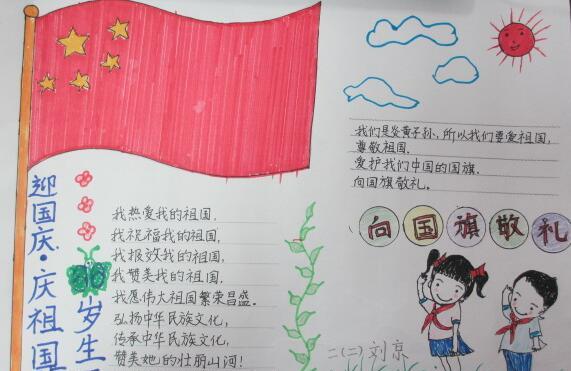 迎国庆·庆祖国
岁生
我热爱我的祖国，
我祝福我的祖国，
我报效我的祖国，
我赞美我的祖国，
我愿伟大祖国繁荣昌盛。
弘扬中华民族文化，
传承中华民族文化，
赞美她的壮丽山河！
我们是炎黄子孙，所以我们要爱祖国，
尊敬祖国．
爱护我们中国的国旗．
向国旗敬礼．
向国旗敬礼
二(二) 刘京